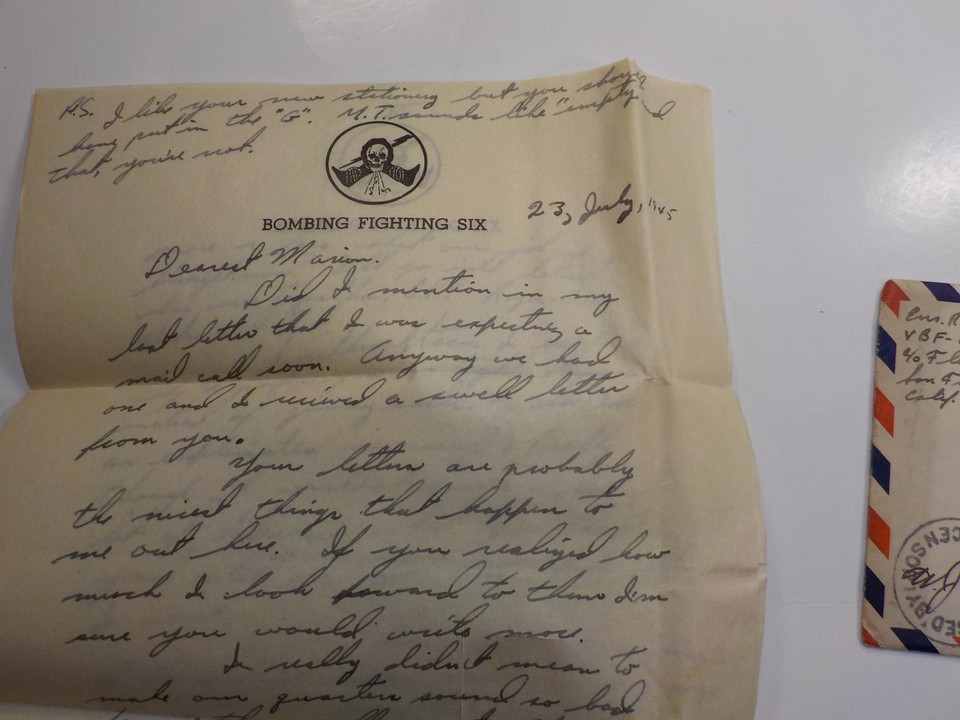 P.S. I like your new stationery but you should
have put in the "G". M.T. sounds like "empty" and
that, you're not.
BOMBING FIGHTING SIX
23, July, 1945
Dearest Marion.
Did I mention in my
last letter that I was expecting a
mail call soon. Anyway we had
one and I recieved a swell letter
from you.
Your letters are probably
the nicest things that happen to
me out here. If you realized how
much I look forward to them I'm
sure you would write more.
I really didn't mean to
make our quarters sound so bad
Ens. R
VBF-
c/o Fl
San F
Calif.
CENSOR
SED BY